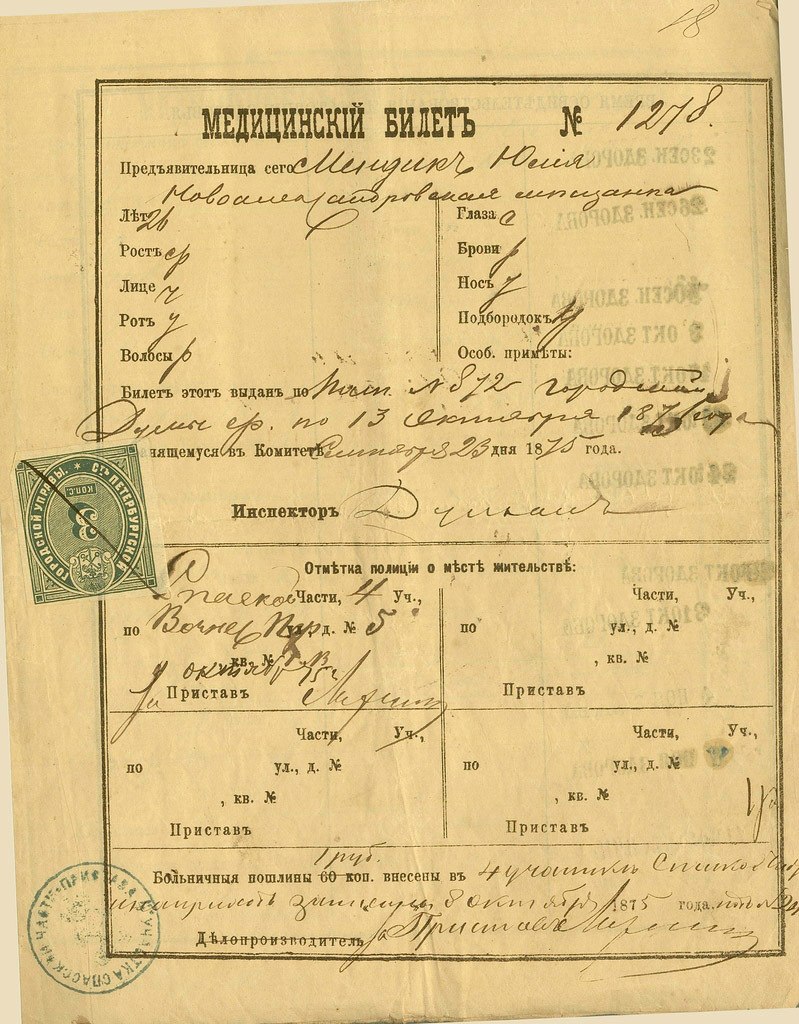 18
МЕДИЦИНСКІЙ БИЛЕТЪ № 1278.
Предъявительница сего Мендикъ Юлія
Новоалександровская мѣщанка
Лѣтъ 26 Глаза с
Ростъ ср Брови р
Лице ч Носъ у
Ротъ у Подбородокъ у
Волосы р Особ. примѣты:
Билетъ этотъ выданъ по № 872 городской
Думы ср. по 13 Октября 187 года
анящемуся въ Комитетѣ Сентября 23 дня 1875 года.
Инспекторъ
ГОРОДСКОЙ УПРАВЫ. * СТЪ ПЕТЕРБУРГСКОЙ
3 КОП. С
Отмѣтка полиціи о мѣстѣ жительствѣ:
Спаской Части, 4 Уч., Части, Уч.,
по пер ул., д. № 5 по ул., д. №
кв. № , кв. №
октяб 75
За Приставъ Приставъ
Части, Уч., Части, Уч.,
по ул., д. № по ул., д. №
, кв. № , кв. №
Приставъ Приставъ
1 руб.
Больничныя пошлины 60 коп. внесены въ 4 участкѣ Спаской
записаны 8 октября 1875 года
Дѣлопроизводитель За Приставъ
ПРИСТАВА 4 УЧАСТКА СПАССКОЙ ЧАСТИ